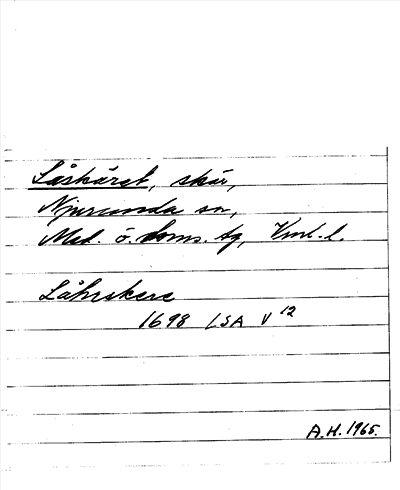 Låskäret, skär,
Njurunda sn,
Med. ö. doms. tg, Vnl. l.
Låhrskere
1698 LSA V 12
A.H. 1965.